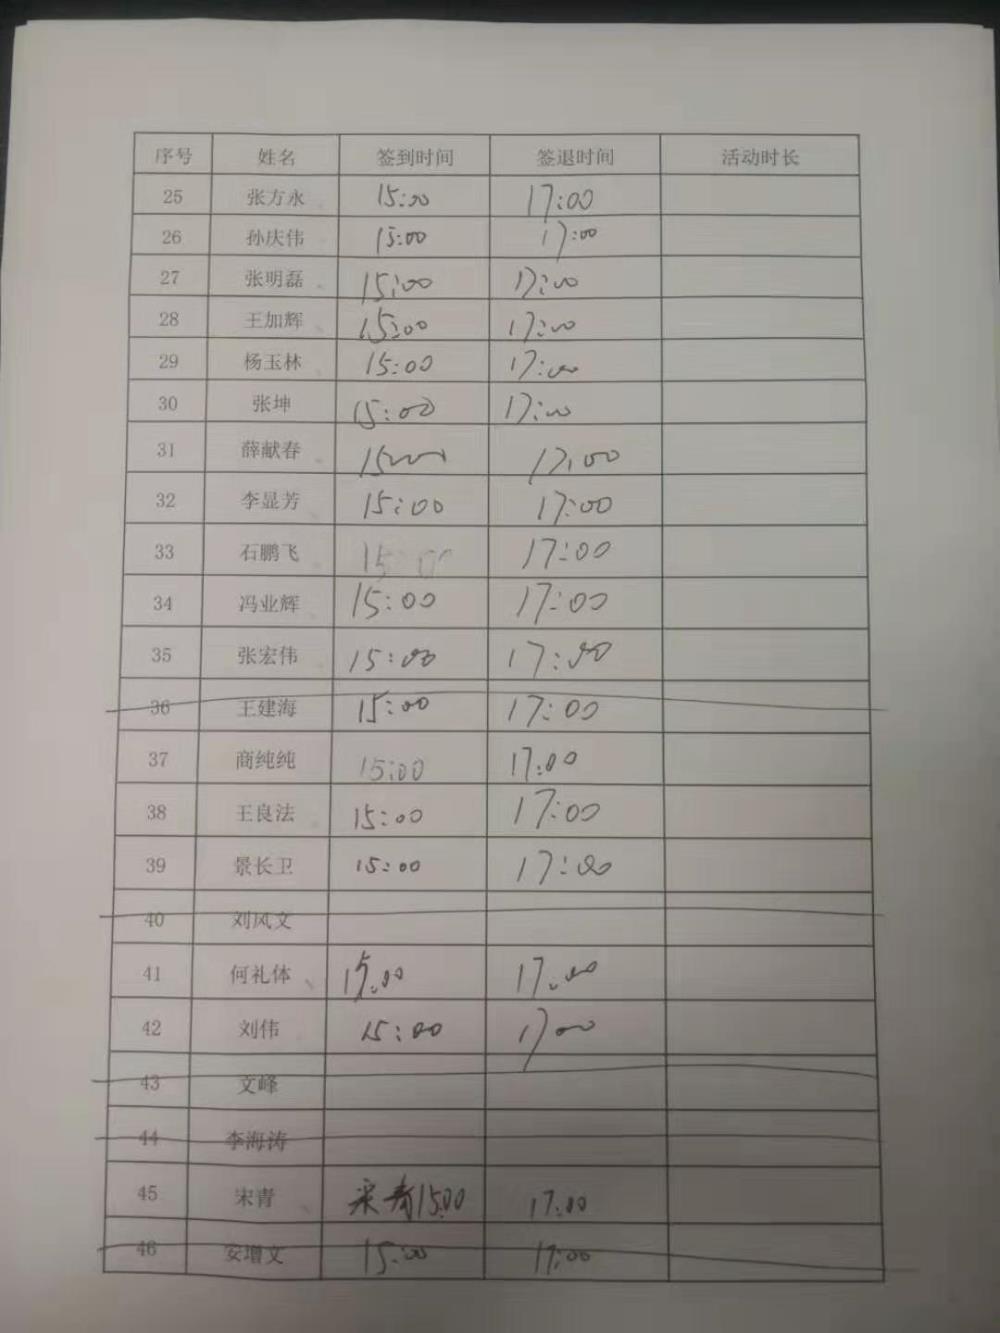 序号 姓名 签到时间 签退时间 活动时长
25 张方永 15:00 17:00
26 孙庆伟 15:00 17:00
27 张明磊 15:00 17:00
28 王加辉 15:00 17:00
29 杨玉林 15:00 17:00
30 张坤 15:00 17:00
31 薛献春 15:00 17:00
32 李显芳 15:00 17:00
33 石鹏飞 15:00 17:00
34 冯业辉 15:00 17:00
35 张宏伟 15:00 17:00
36 王建海 15:00 17:00
37 商纯纯 15:00 17:00
38 王良法 15:00 17:00
39 景长卫 15:00 17:00
40 刘风文
41 何礼体 15:00 17:00
42 刘伟 15:00 17:00
43 文峰
44 李海涛
45 宋青 宋青 15:00 17:00
46 安增文 15:00 17:00